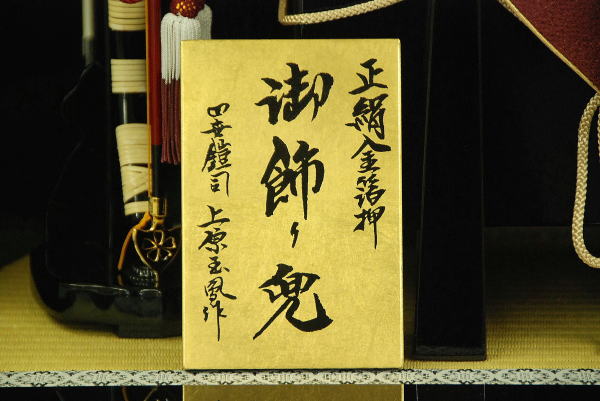 正絹金箔押
御飾り兜
四世鎧司 上原玉鳳作